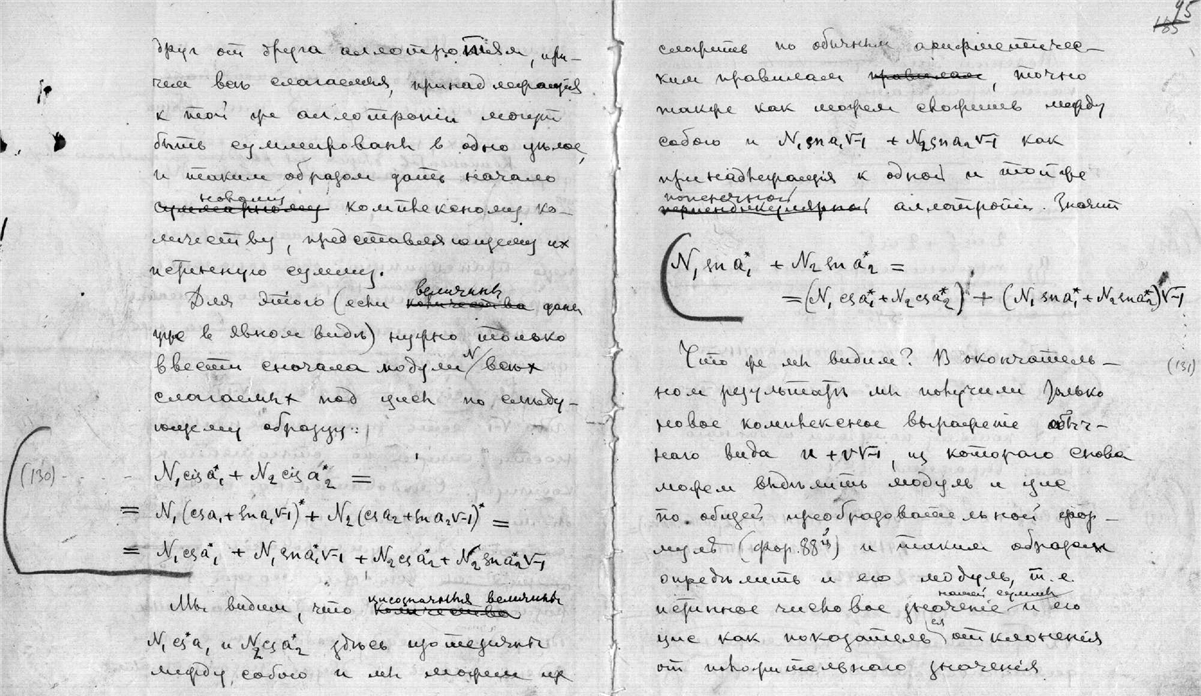 друг от друга аллотропіям, при-
чем всѣ слагаемыя, принадлежащія
к той же аллотропіи могут
быть суммированы в одно цѣлое,
и таким образом дать начало
новому
суммарному комплексному ко-
личеству, представляющему их
истинную сумму.
величины
Для этого (если количества даны
уже в явном видѣ) нужно только
ввести сначала модули N всѣх
слагаемых под циси по слѣду-
ющему образцу:
(130)
N₁cis a₁* + N₂cis a₂* =
= N₁(cs a₁ + sn a₁√-1)* + N₂(cs a₂ + sn a₂√-1)* =
= N₁cs a₁* + N₁sn a₁*√-1 + N₂cs a₂* + N₂sn a₂*√-1
цисозначныя величины
Мы видим, что количества
N₁cs*a₁ и N₂cs a₂* здѣсь изотропичны
между собою и мы можем их
95
165
сложить по обычным арифметичес-
ким правилам правилам, точно
также как можем сложить между
собою и N₁sn a₁√-1 + N₂sn a₂√-1 как
принадлежащія к одной и той же
поперечной
перпендикулярной аллотропіи. Значит
N₁ sn a₁* + N₂ sn a₂* =
= (N₁ cs a₁* + N₂ cs a₂*) + (N₁ sn a₁* + N₂ sn a₂*)√-1
(131)
Что же мы видим? В окончатель-
ном результатѣ мы получили только
новое комплексное выраженіе обыч-
наго вида u + v√-1, из котораго снова
можем выдѣлить модуль и цис
по общей преобразовательной фор-
мулѣ (фор. 88) и таким образом
опредѣлить и его модуль, т.е.
нашей суммы
истинное числовое значеніе и его
цис как показатель ея отклоненія
от положительнаго значенія.